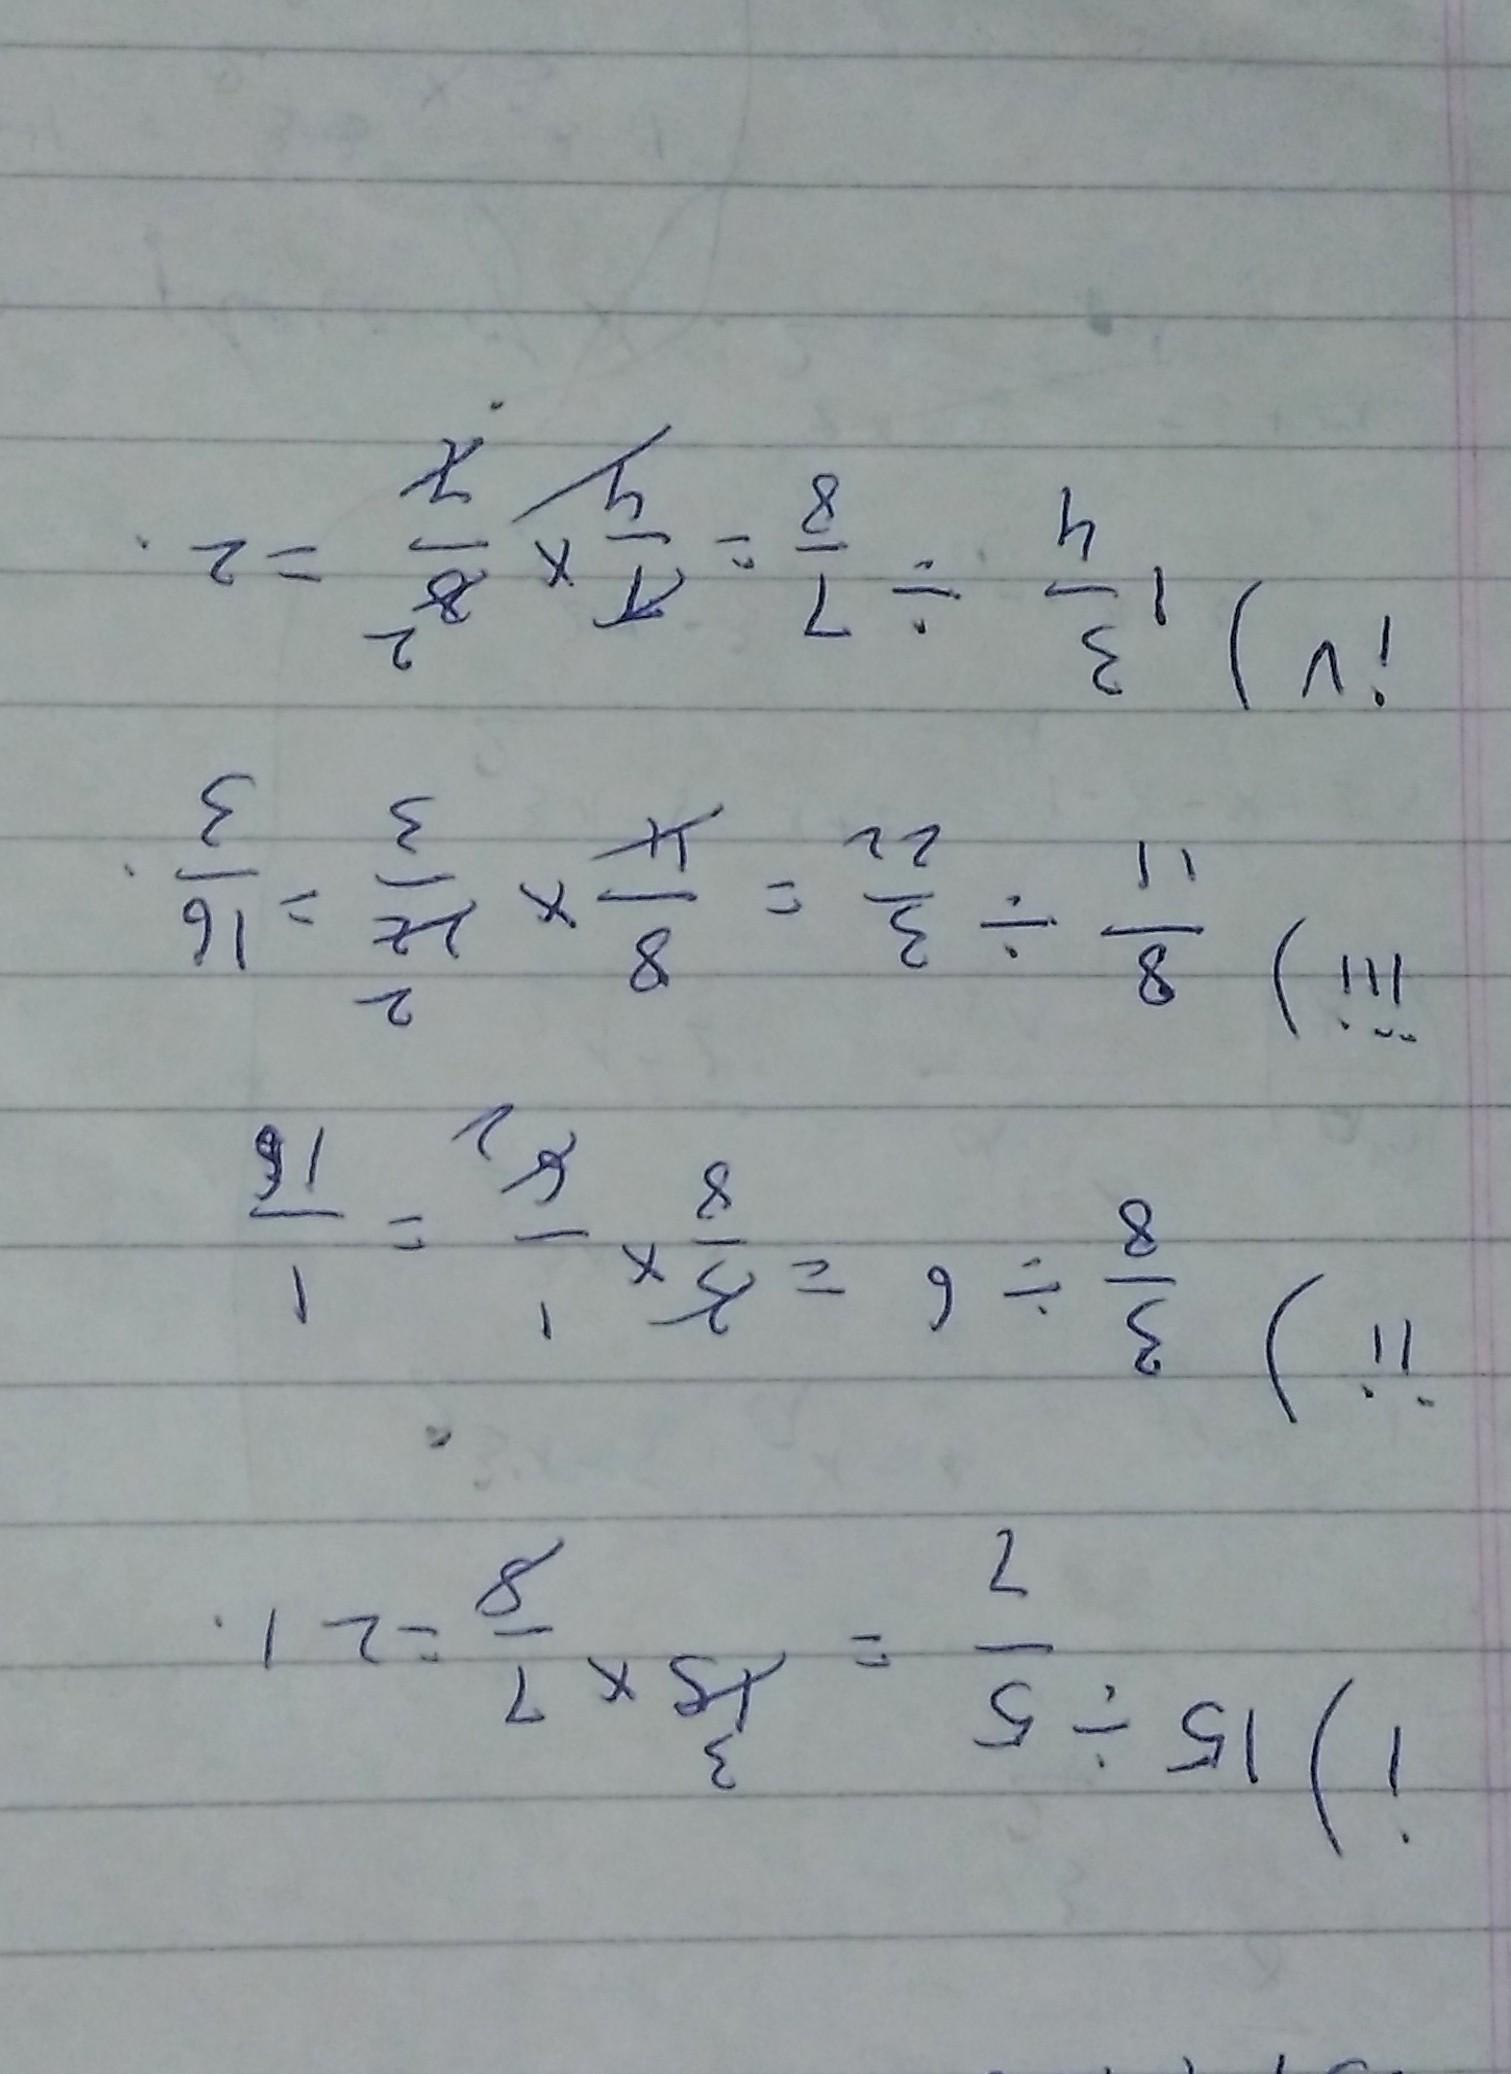 i) 15 ÷ 5/7 = 15 3 × 7/8 = 21.
ii) 3/8 ÷ 6 = 3/8 × 1/6 2 = 1/16
iii) 8/11 ÷ 3/22 = 8/11 × 22 2/3 = 16/3.
iv) 1 3/4 ÷ 7/8 = 7/4 × 8 2/7 = 2.